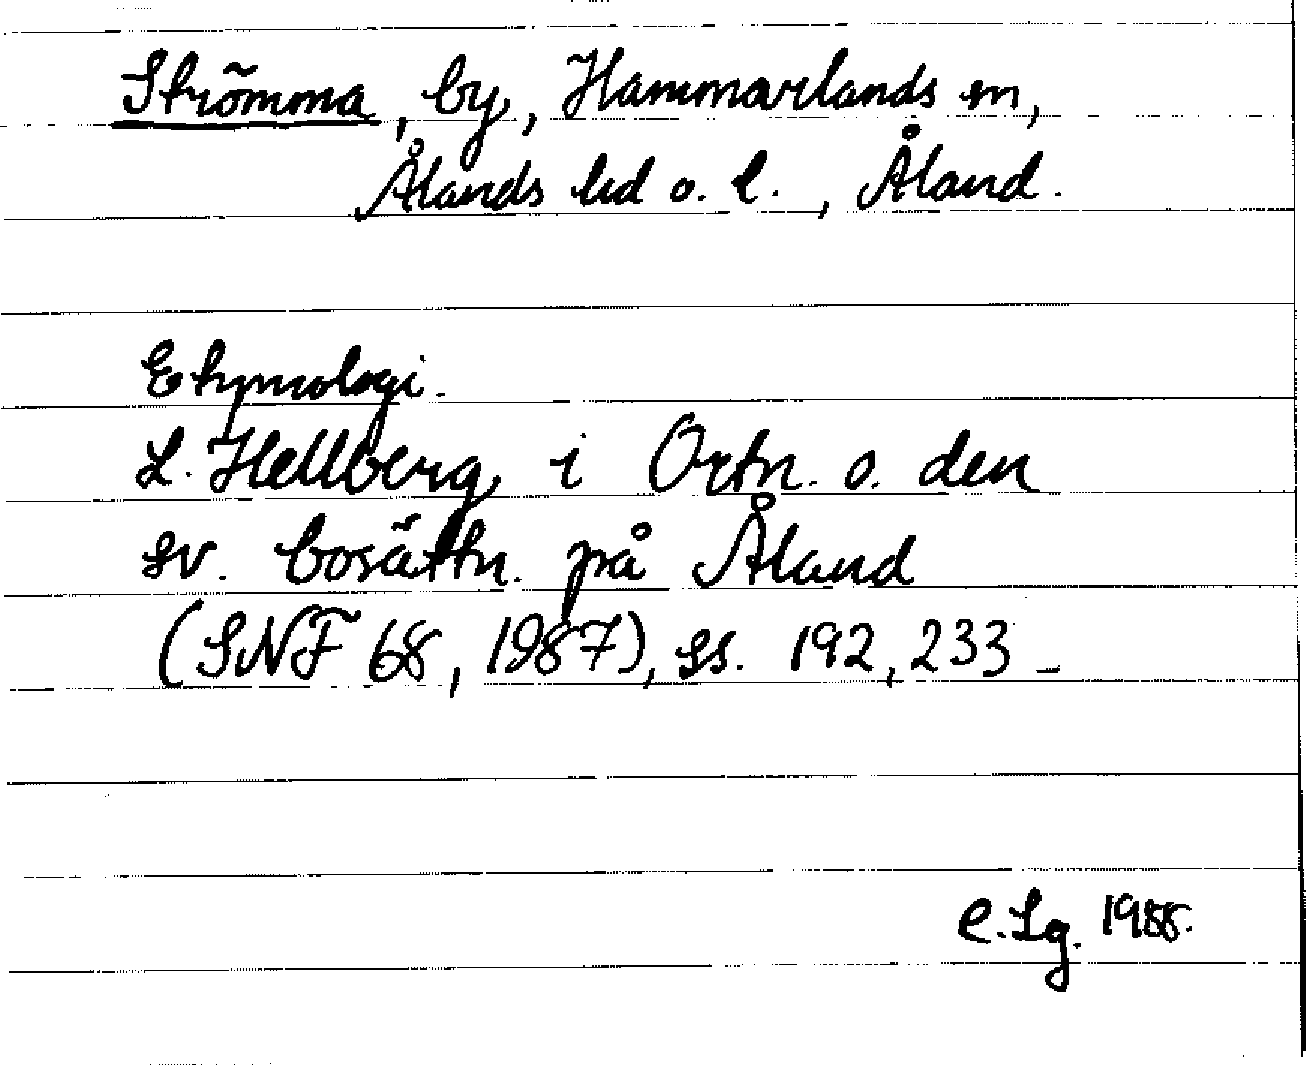 Strömma, by, Hammarlands sn,
Ålands hd o. l., Åland.
Etymologi.
L. Hellberg i Ortn. o. den
sv. bosättn. på Åland
(SNF 68, 1987), ss. 192, 233
C. Sg. 1988.